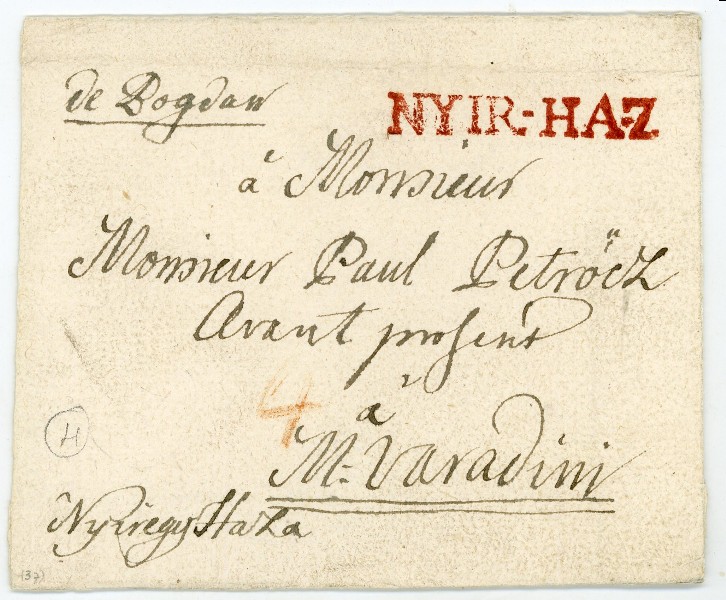 de Bogdan
NYIR-HA-Z
à Monsieur
Monsieur Paul Petröcz
Avant present
4
à
M= Varadini
H
Nyiregy Haza
(37)